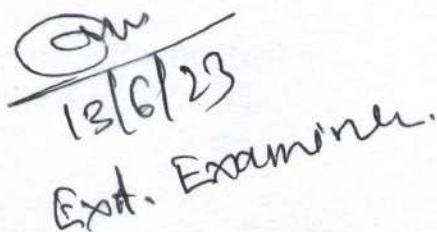 13/6/23
Ext. Examiner.